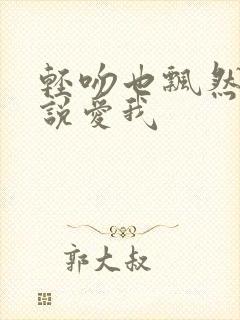 輕吻也飄然
說愛我
郭大叔